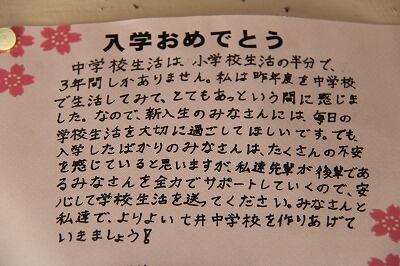 入学おめでとう
中学校生活は、小学校生活の半分で、
3年間しかありません。私は昨年度を中学校
で生活してみて、とてもあっという間に感じま
した。なので、新入生のみなさんには、毎日の
学校生活を大切に過ごしてほしいです。でも、
入学したばかりのみなさんは、たくさんの不安
を感じていると思いますが、私達先輩が後輩であ
るみなさんを全力でサポートしていくので、安
心して学校生活を送ってください。みなさんと
私達で、よりよい七井中学校を作りあげて
いきましょう!